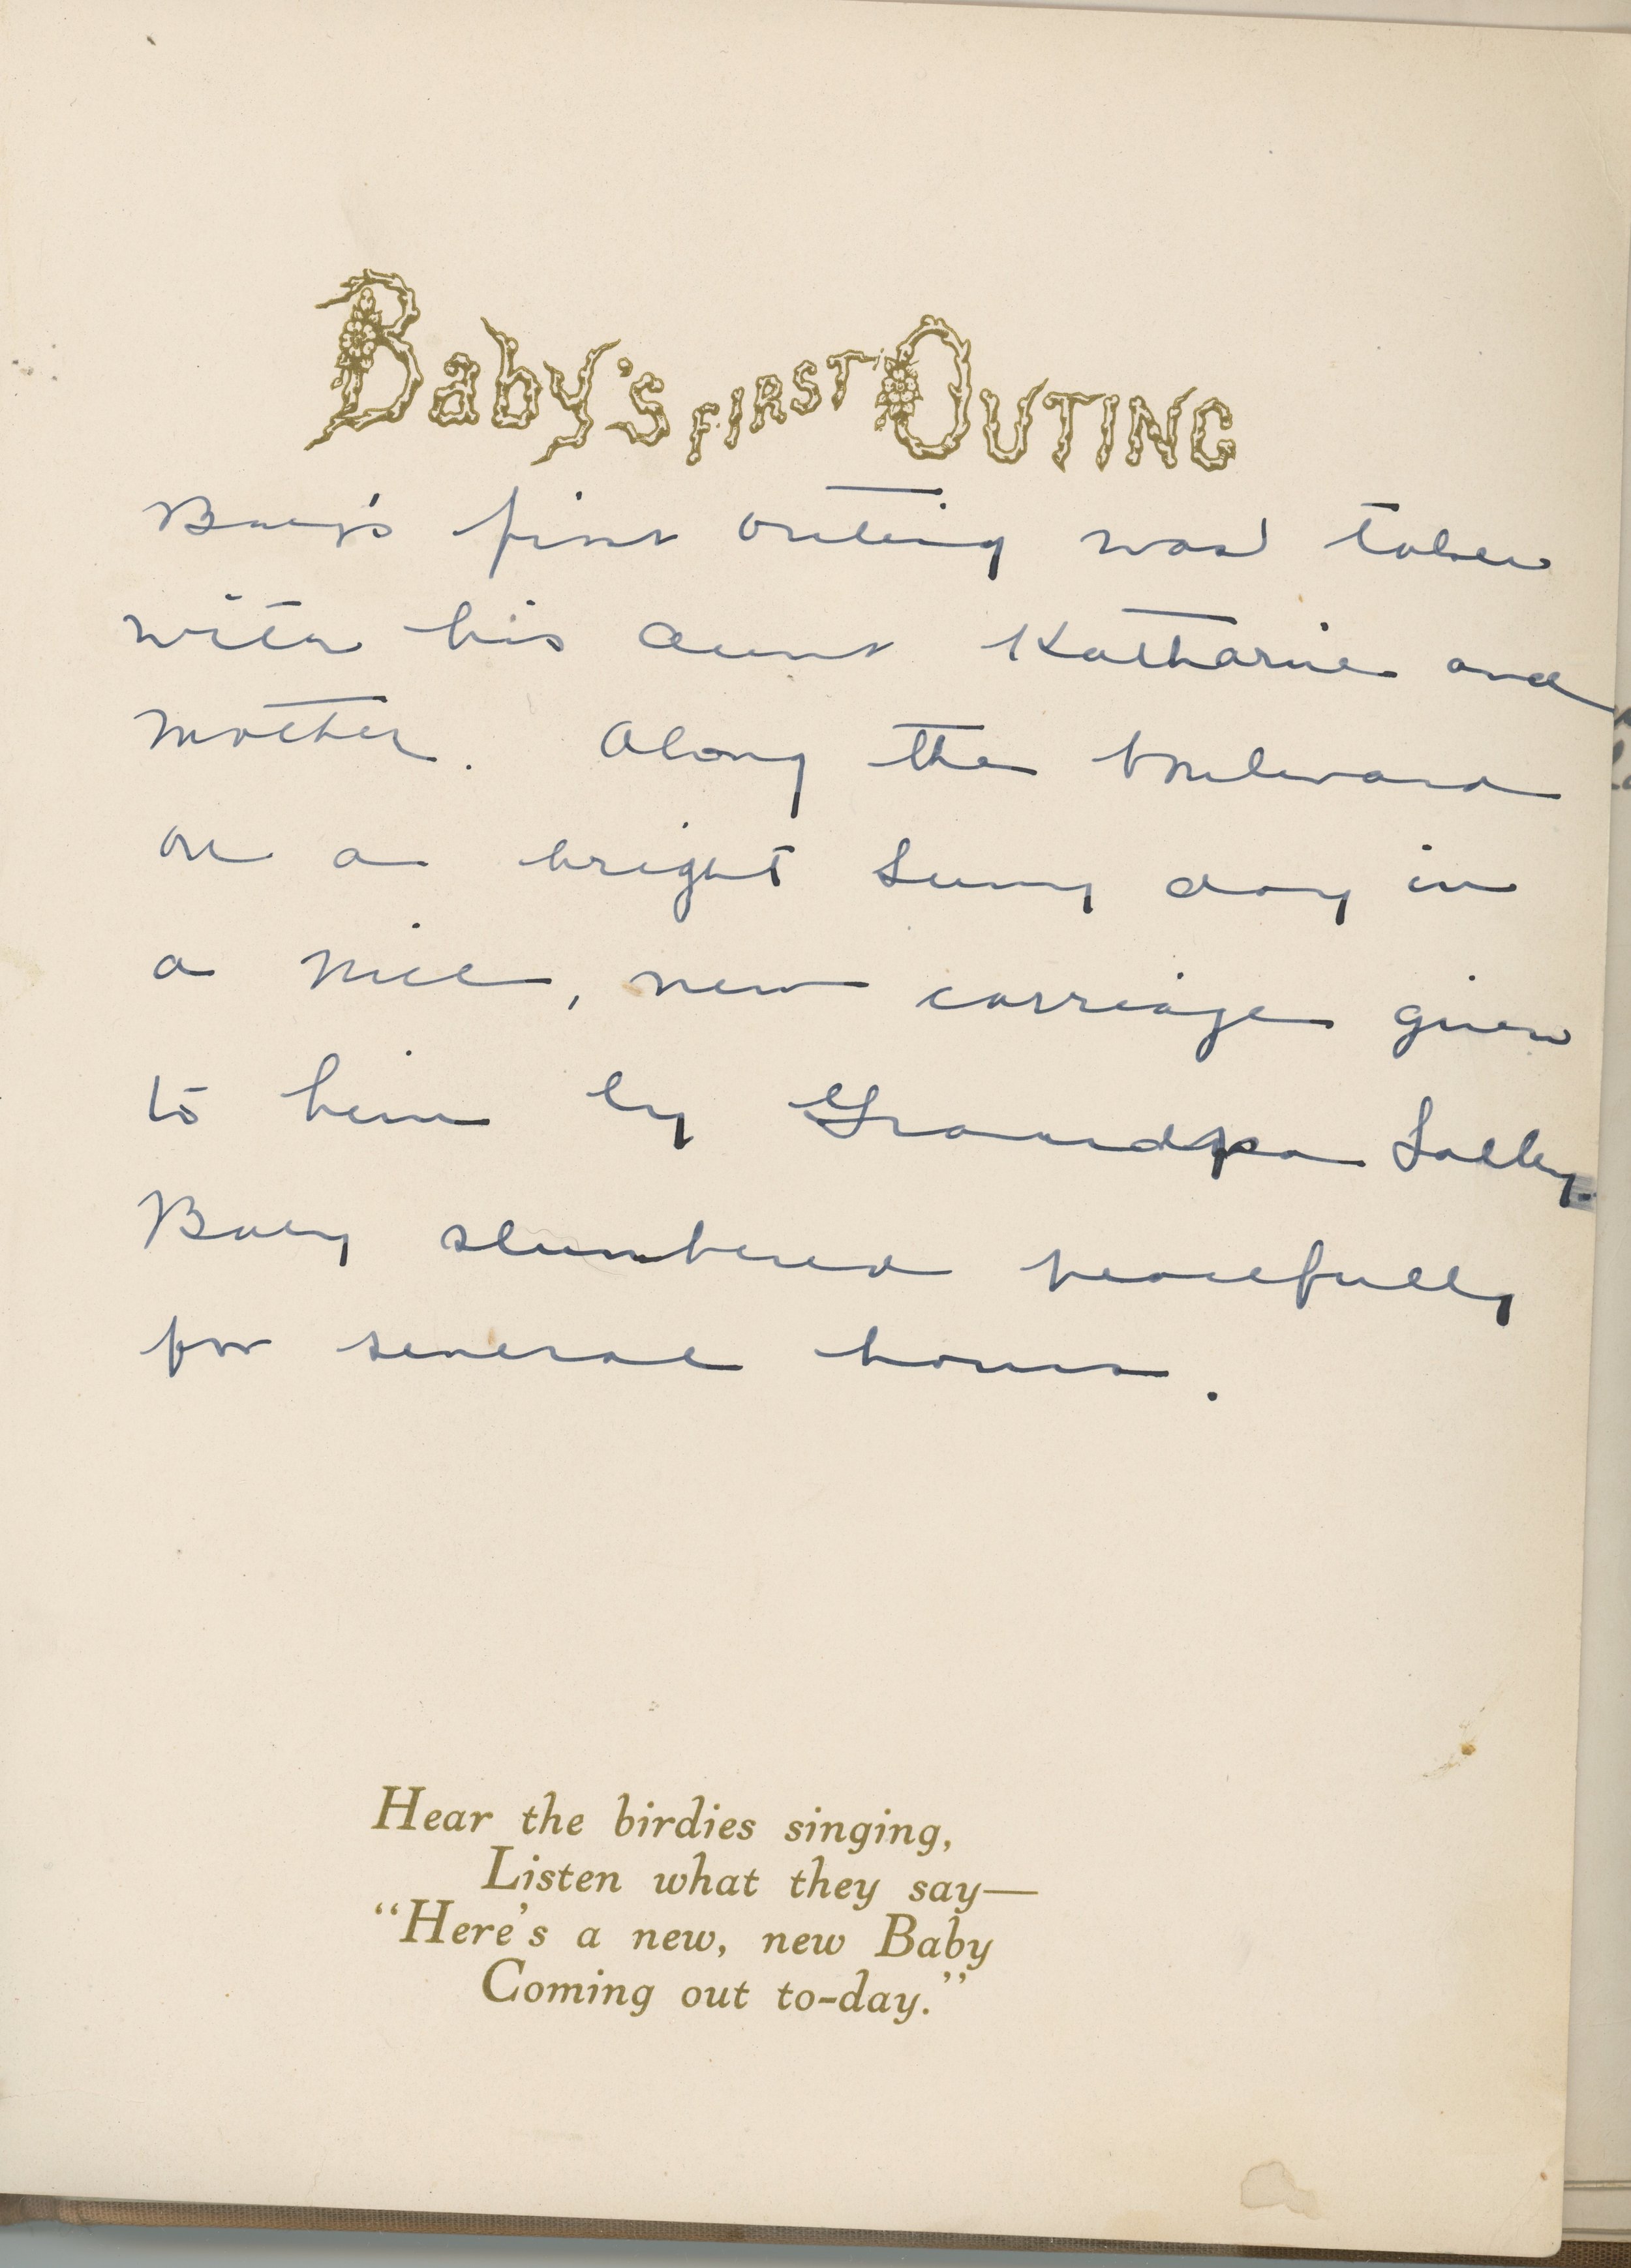 Baby's First Outing
Baby's first outing was taken
with his aunt Katharine and
mother. Along the boulevard
on a bright sunny day in
a nice, new carriage given
to him by Grandpa
Baby slumbered peacefully
for several hours.
Hear the birdies singing,
Listen what they say—
"Here's a new, new Baby
Coming out to-day."